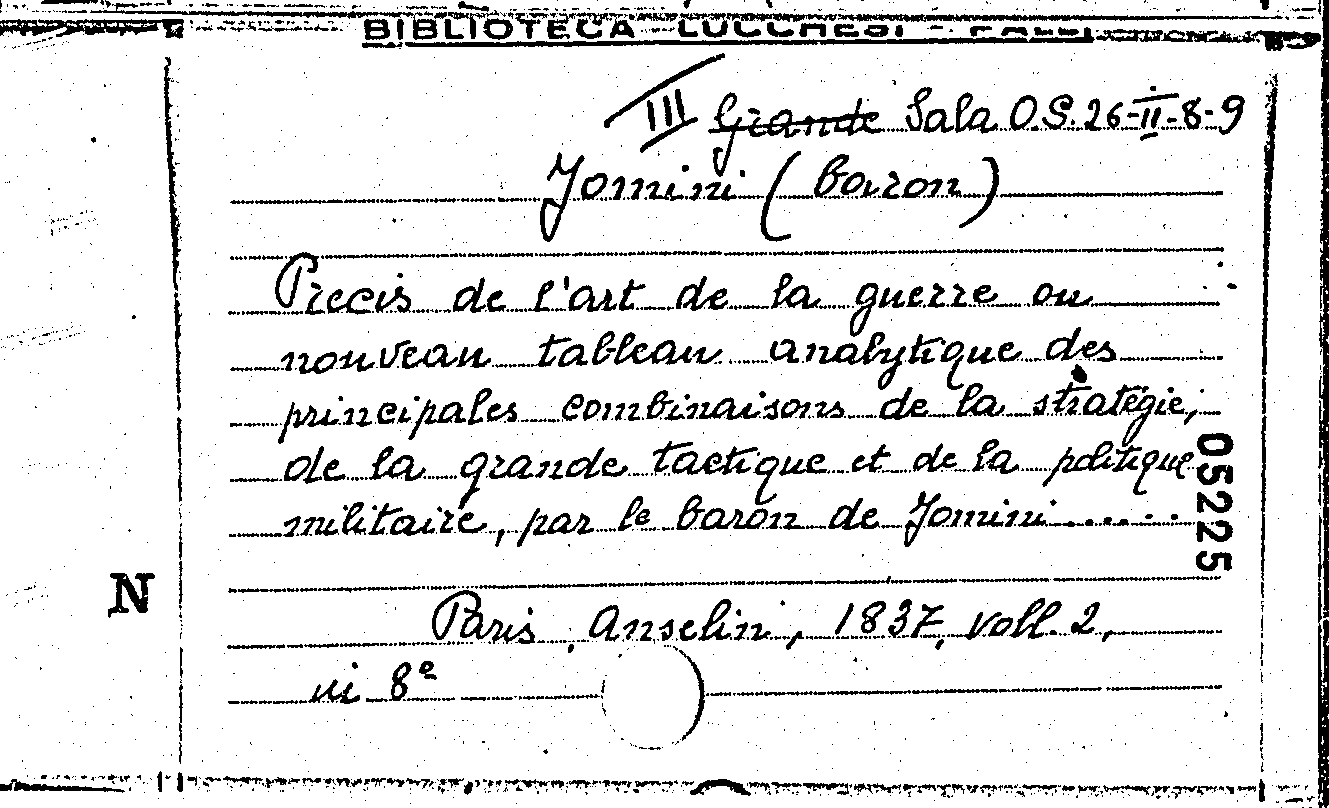 BIBLIOTECA LUCCHESI -
III Grande Sala O.S. 26-II-8-9
Jomini (baron)
Precis de l'art de la guerre ou
nouveau tableau analytique des
principales combinaisons de la stratégie,
de la grande tactique et de la politique
militaire, par le baron de Jomini ......
05225
N
Paris, Anselin, 1837, voll. 2,
in 8º